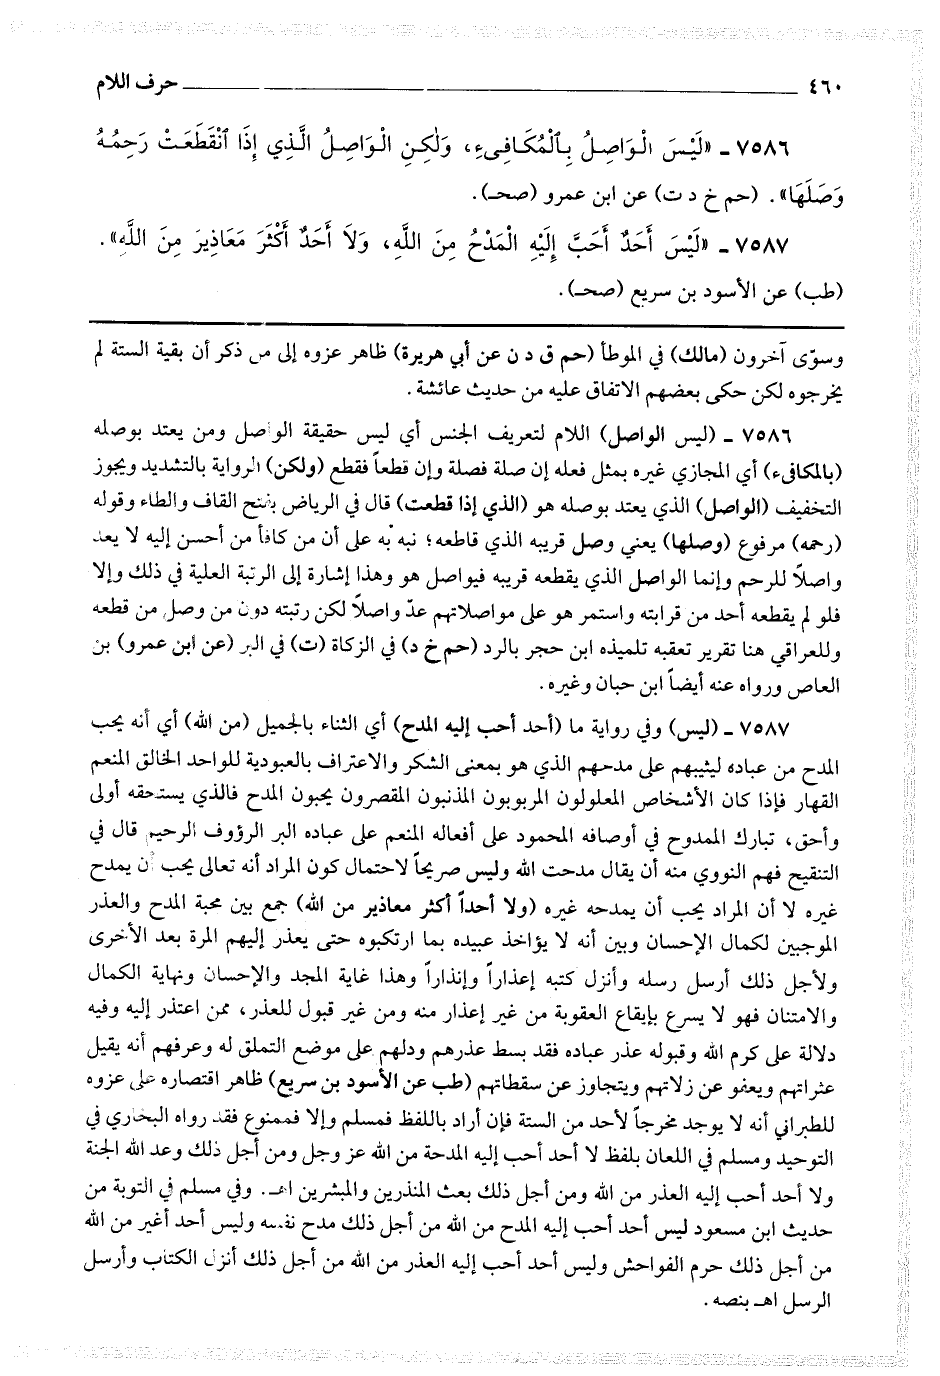 ٤٦٠ ــــــــــــــــــــــــــــــــــــــــ حرف اللام
٧٥٨٦ ـ «لَيْسَ الْوَاصِلُ بِٱلْمُكَافِىءِ، وَلٰكِنِ الْوَاصِلُ الَّذِي إِذَا ٱنْقَطَعَتْ رَحِمُهُ
وَصَلَهَا». (حم خ د ت) عن ابن عمرو (صحـ).
٧٥٨٧ ـ «لَيْسَ أَحَدٌ أَحَبَّ إِلَيْهِ الْمَدْحُ مِنَ اللَّهِ، وَلاَ أَحَدٌ أَكْثَرَ مَعَاذِيرَ مِنَ اللَّهِ».
(طب) عن الأسود بن سريع (صحـ).
وسوّى آخرون (مالك) في الموطأ (حم ق د ن عن أبي هريرة) ظاهر عزوه إلى من ذكر أن بقية الستة لم
يخرجوه لكن حكى بعضهم الاتفاق عليه من حديث عائشة.
٧٥٨٦ ـ (ليس الواصل) اللام لتعريف الجنس أي ليس حقيقة الواصل ومن يعتد بوصله
(بالمكافىء) أي المجازي غيره بمثل فعله إن صلة فصلة وإن قطعاً فقطع (ولكن) الرواية بالتشديد ويجوز
التخفيف (الواصل) الذي يعتد بوصله هو (الذي إذا قطعت) قال في الرياض بفتح القاف والطاء وقوله
(رحمه) مرفوع (وصلها) يعني وصل قريبه الذي قاطعه؛ نبه به على أن من كافأ من أحسن إليه لا يعد
واصلاً للرحم وإنما الواصل الذي يقطعه قريبه فيواصل هو وهذا إشارة إلى الرتبة العلية في ذلك وإلا
فلو لم يقطعه أحد من قرابته واستمر هو على مواصلاتهم عدّ واصلاً لكن رتبته دون من وصل من قطعه
وللعراقي هنا تقرير تعقبه تلميذه ابن حجر بالرد (حم خ د) في الزكاة (ت) في البر (عن ابن عمرو) بن
العاص ورواه عنه أيضاً ابن حبان وغيره.
٧٥٨٧ ـ (ليس) وفي رواية ما (أحد أحب إليه المدح) أي الثناء بالجميل (من الله) أي أنه يحب
المدح من عباده ليثيبهم على مدحهم الذي هو بمعنى الشكر والاعتراف بالعبودية للواحد الخالق المنعم
القهار فإذا كان الأشخاص المعلولون المربوبون المذنبون المقصرون يحبون المدح فالذي يستحقه أولى
وأحق، تبارك الممدوح في أوصافه المحمود على أفعاله المنعم على عباده البر الرؤوف الرحيم قال في
التنقيح فهم النووي منه أن يقال مدحت الله وليس صريحاً لاحتمال كون المراد أنه تعالى يحب أن يمدح
غيره لا أن المراد يحب أن يمدحه غيره (ولا أحداً أكثر معاذير من الله) جمع بين محبة المدح والعذر
الموجبين لكمال الإحسان وبين أنه لا يؤاخذ عبيده بما ارتكبوه حتى يعذر إليهم المرة بعد الأخرى
ولأجل ذلك أرسل رسله وأنزل كتبه إعذاراً وإنذاراً وهذا غاية المجد والإحسان ونهاية الكمال
والامتنان فهو لا يسرع بإيقاع العقوبة من غير إعذار منه ومن غير قبول للعذر، ممن اعتذر إليه وفيه
دلالة على كرم الله وقبوله عذر عباده فقد بسط عذرهم ودلهم على موضع التملق له وعرفهم أنه يقيل
عثراتهم ويعفو عن زلاتهم ويتجاوز عن سقطاتهم (طب عن الأسود بن سريع) ظاهر اقتصاره على عزوه
للطبراني أنه لا يوجد مخرجاً لأحد من الستة فإن أراد باللفظ فمسلم وإلا فممنوع فقد رواه البخاري في
التوحيد ومسلم في اللعان بلفظ لا أحد أحب إليه المدحة من الله عز وجل ومن أجل ذلك وعد الله الجنة
ولا أحد أحب إليه العذر من الله ومن أجل ذلك بعث المنذرين والمبشرين اهـ. وفي مسلم في التوبة من
حديث ابن مسعود ليس أحد أحب إليه المدح من الله من أجل ذلك مدح نفسه وليس أحد أغير من الله
من أجل ذلك حرم الفواحش وليس أحد أحب إليه العذر من الله من أجل ذلك أنزل الكتاب وأرسل
الرسل اهـ بنصه.